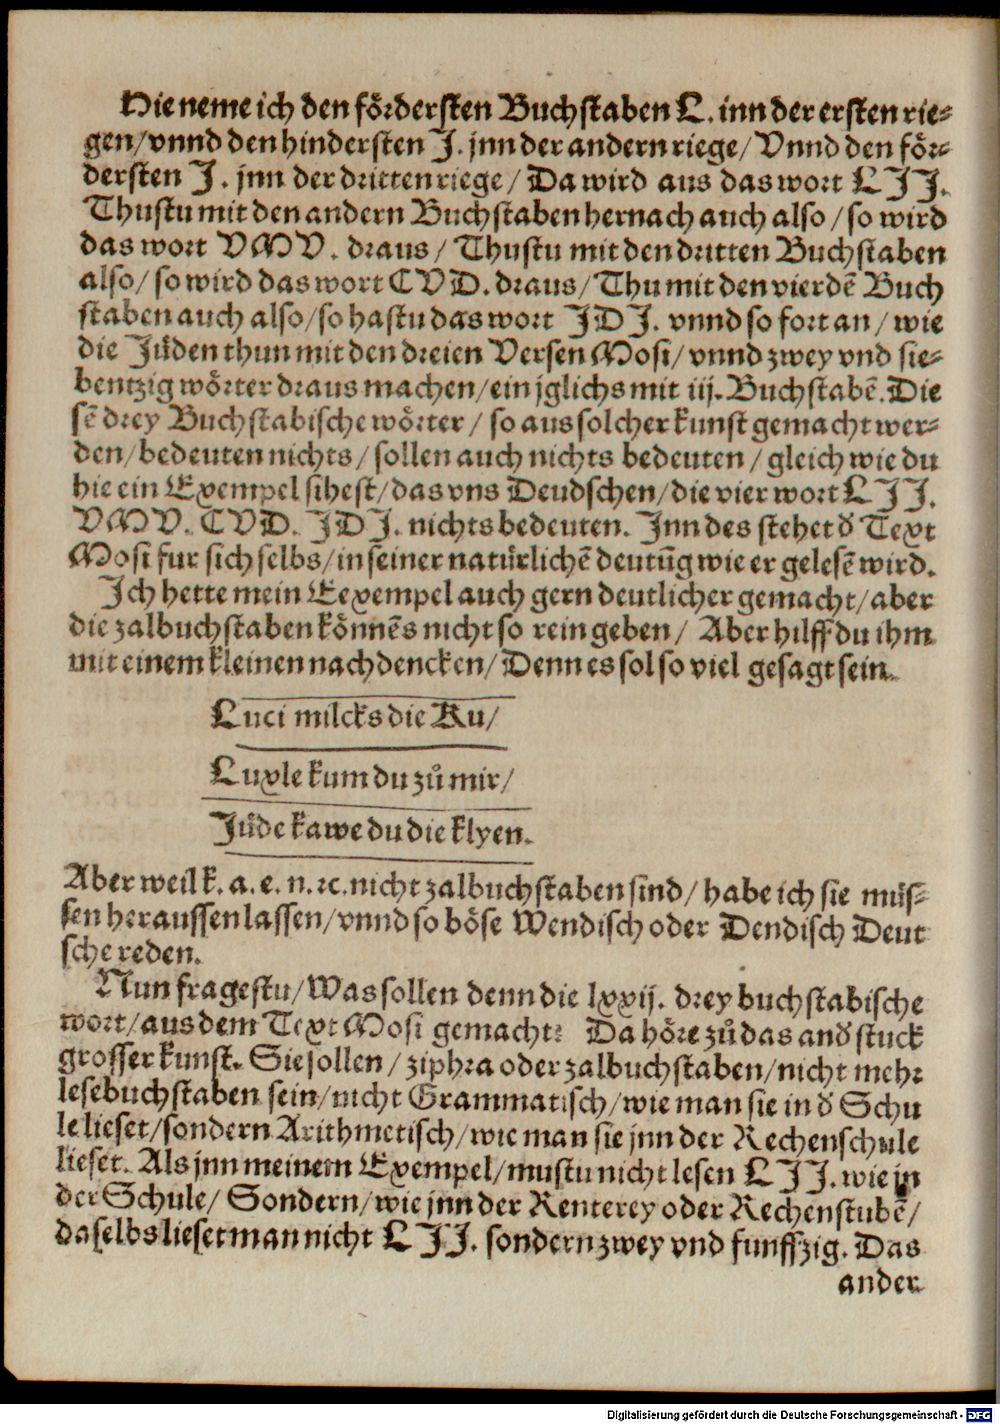 Hie neme ich den fördersten Buchstaben L. inn der ersten rie-
gen/ vnnd den hindersten J. jnn der andern riege/ Vnnd den för-
dersten J. jnn der dritten riege/ Da wird aus das wort LJJ.
Thustu mit den andern Buchstaben hernach auch also/ so wird
das wort VMV. draus/ Thustu mit den dritten Buchstaben
also/ so wird das wort CVD. draus/ Thu mit den vierdē Buch
staben auch also/ so hastu das wort JDJ. vnnd so fort an/ wie
die Jüden thun mit den dreien Versen Mosi/ vnnd zwey vnd sie-
bentzig wörter draus machen/ ein jglichs mit iij. Buchstabē. Die
sē drey Buchstabische wörter/ so aus solcher kunst gemacht wer-
den/ bedeuten nichts/ sollen auch nichts bedeuten/ gleich wie du
hie ein Exempel sihest/ das vns Deudschen/ die vier wort LJJ.
VMV. CVD. JDJ. nichts bedeuten. Jnn des stehet d̕ Text
Mosi fur sich selbs/ in seiner natürlichē deutūg wie er gelesē wird.
Jch hette mein Eexempel auch gern deutlicher gemacht/ aber
die zalbuchstaben könnēs nicht so rein geben/ Aber hilff du ihm
mit einem kleinen nachdencken/ Denn es sol so viel gesagt sein.
Luci milcks die Ku/
Luxle kum du zů mir/
Jüde kawe du die klyen.
Aber weil k. a. e. n. ꝛc. nicht zalbuchstaben sind/ habe ich sie müs-
sen heraussen lassen/ vnnd so böse Wendisch oder Dendisch Deut
sche reden.
Nun fragestu/ Was sollen denn die lxxij. drey buchstabische
wort/ aus dem Text Mosi gemacht? Da höre zů das and̕ stuck
grosser kunst. Sie sollen/ ziphra oder zalbuchstaben/ nicht mehr
lesebuchstaben sein/ nicht Grammatisch/ wie man sie in d̕ Schu
le lieset/ sondern Arithmetisch/ wie man sie jnn der Rechenschule
lieset. Als jnn meinem Exempel/ mustu nicht lesen LJJ. wie jn
der Schule/ Sondern/ wie jnn der Renterey oder Rechenstubē/
daselbs lieset man nicht LJJ. sondern zwey vnd funffzig. Das
ander
Digitalisierung gefördert durch die Deutsche Forschungsgemeinschaft - DFG